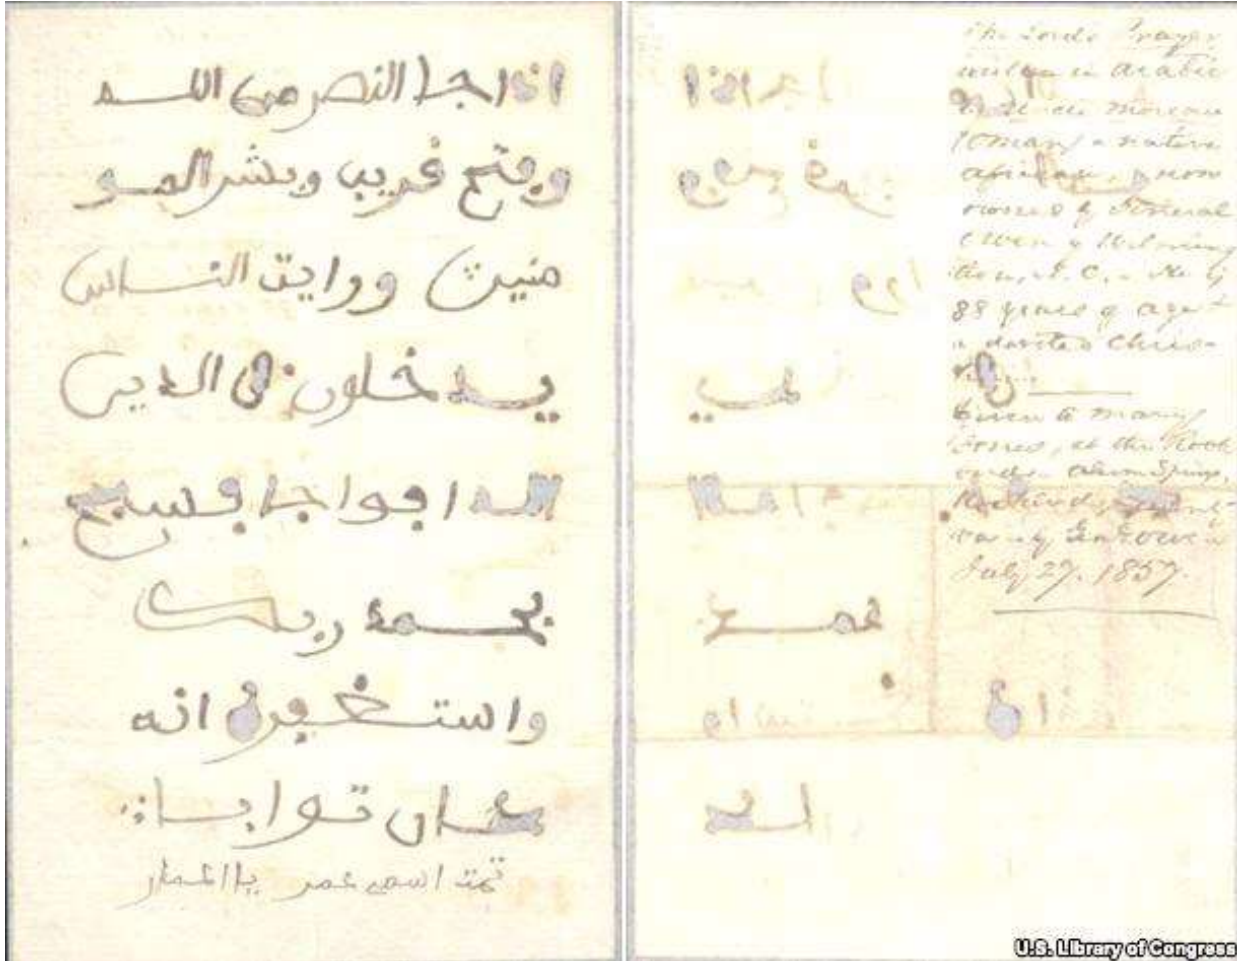 اذا جا النصر من الله
وفتح قريب وبشر المو
منين ورايت الناس
يدخلون في الدين
الله افواجا فسبح
بحمد ربك
واستغفره انه
كان توابا
تمت اسمي عمر
The Lord's Prayer
written in Arabic
by Uncle Moreau
(Omar) a native
African, now
owned by General
Owen of Wilming-
ton, N.C. He is
88 years of age &
a devoted Chris-
tian.
Given to Mary
Jones, at the Rock
Alum Springs,
by Gen Owen
July 27. 1857.
U.S. Library of Congress